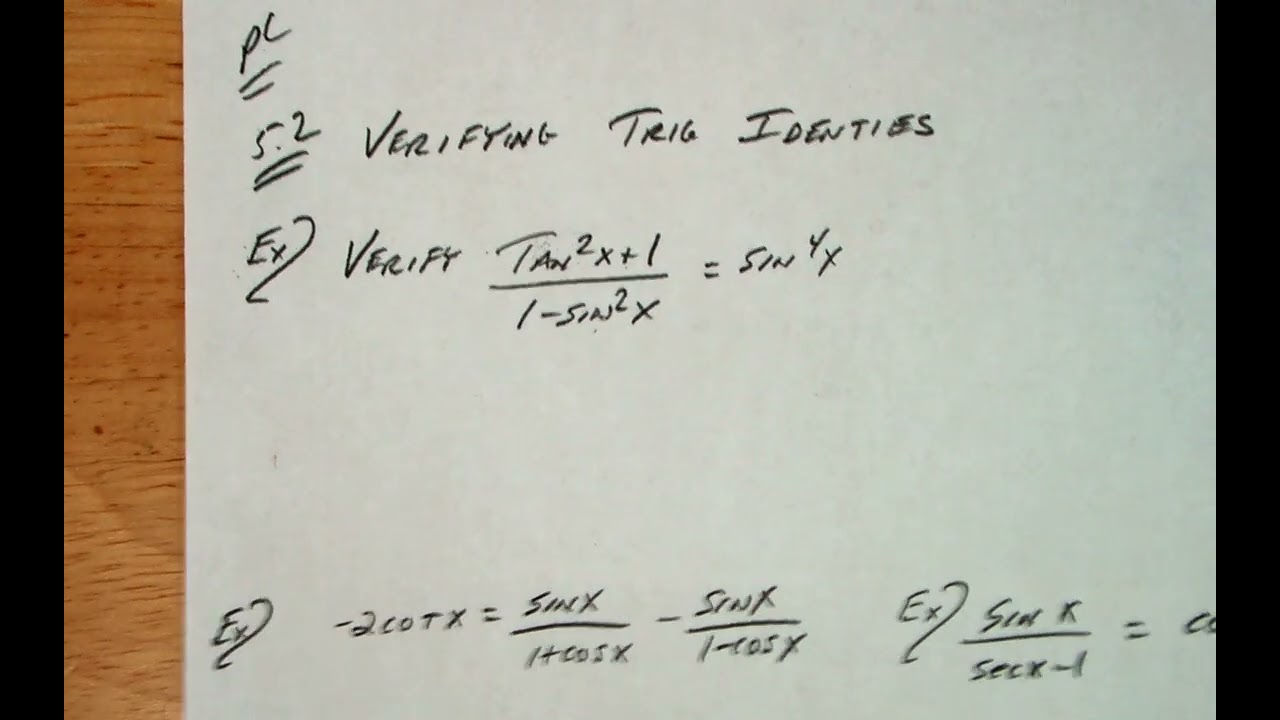 PC
5.2 VERIFYING TRIG IDENTIES
Ex) VERIFY (TAN²x+1)/(1-SIN²x) = SIN⁴x
Ex) -2COTX = SINX/(1+COSX) - SINX/(1-COSX)
Ex) SINX/(SECX-1) = CO